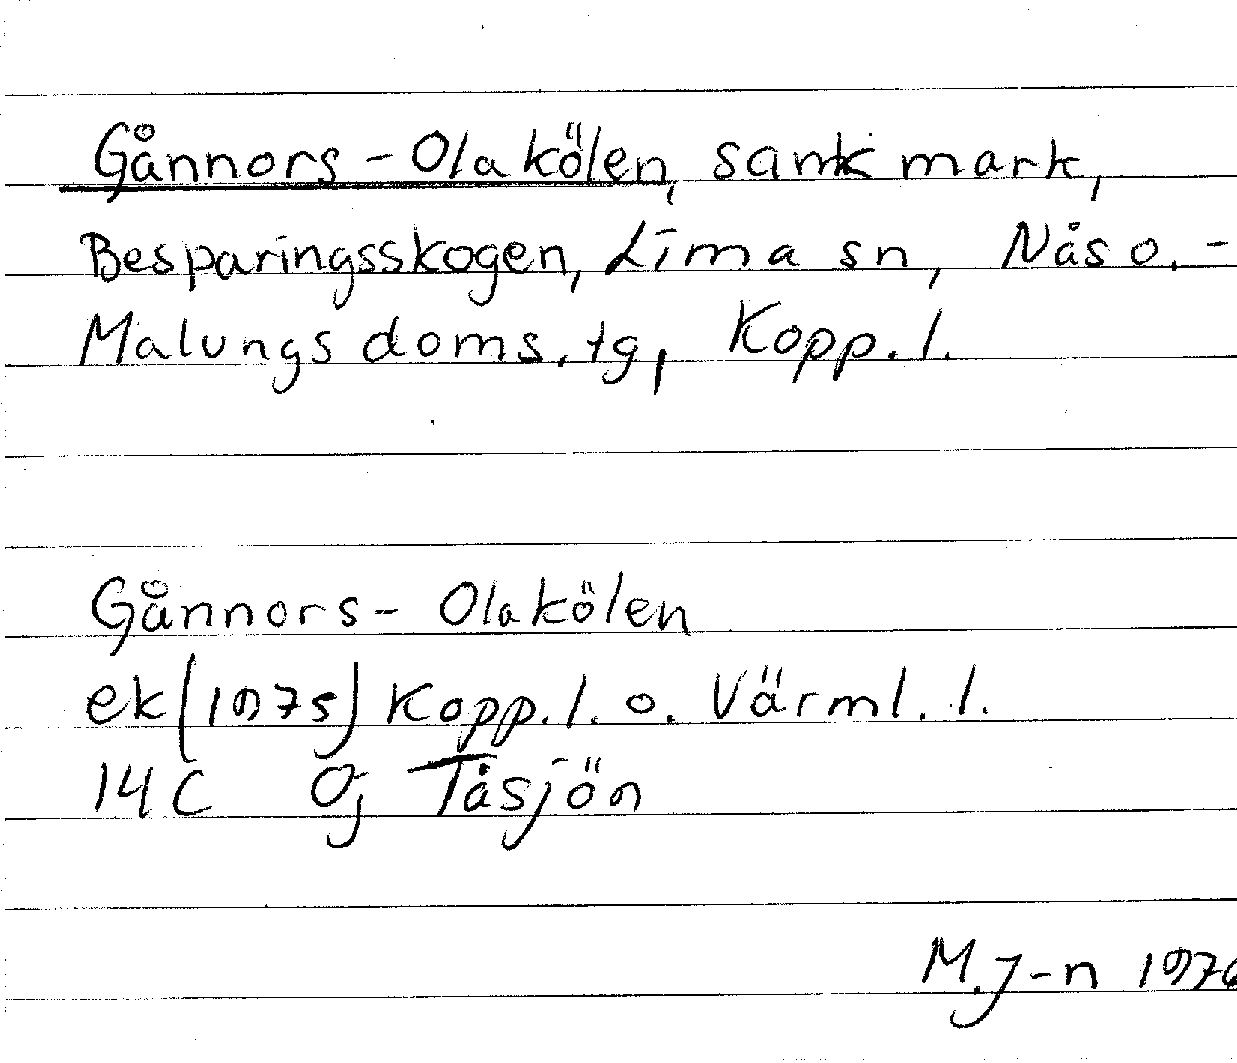 Gånnors - Olakölen, sank mark,
Besparingsskogen, Lima sn, Nås o. -
Malungs doms. tg, Kopp. l.
Gånnors - Olakölen
ek (1975) Kopp. l. o. Värml. l.
14 C Oj Tåsjön
M. J-n 1976